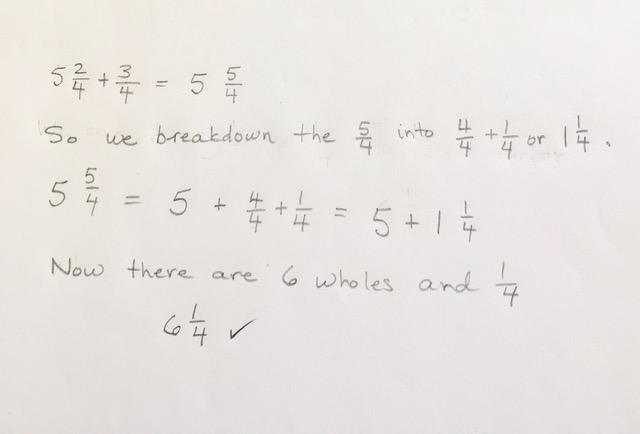 5 2/4 + 3/4 = 5 5/4
So we breakdown the 5/4 into 4/4 + 1/4 or 1 1/4.
5 5/4 = 5 + 4/4 + 1/4 = 5 + 1 1/4
Now there are 6 wholes and 1/4
6 1/4 ✓